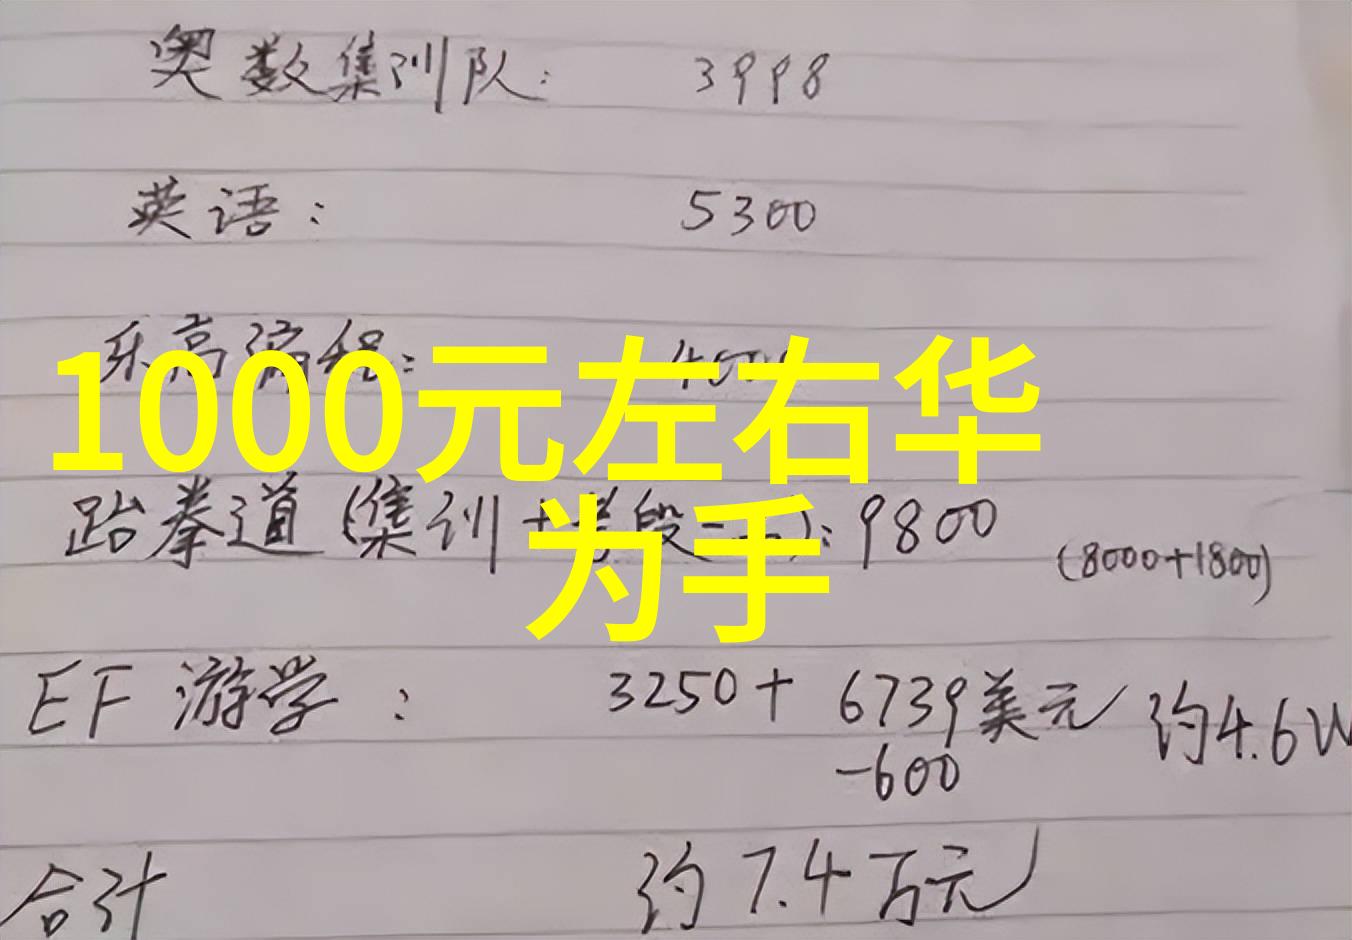 奥数集训队: 3998
英语: 5300
乐高编程:
1000元左右华
为手
跆拳道(集训+考段=品): 9800 (8000+1800)
EF 游学: 3250+ 6739美元 约4.6W
-600
合计 约7.4万元